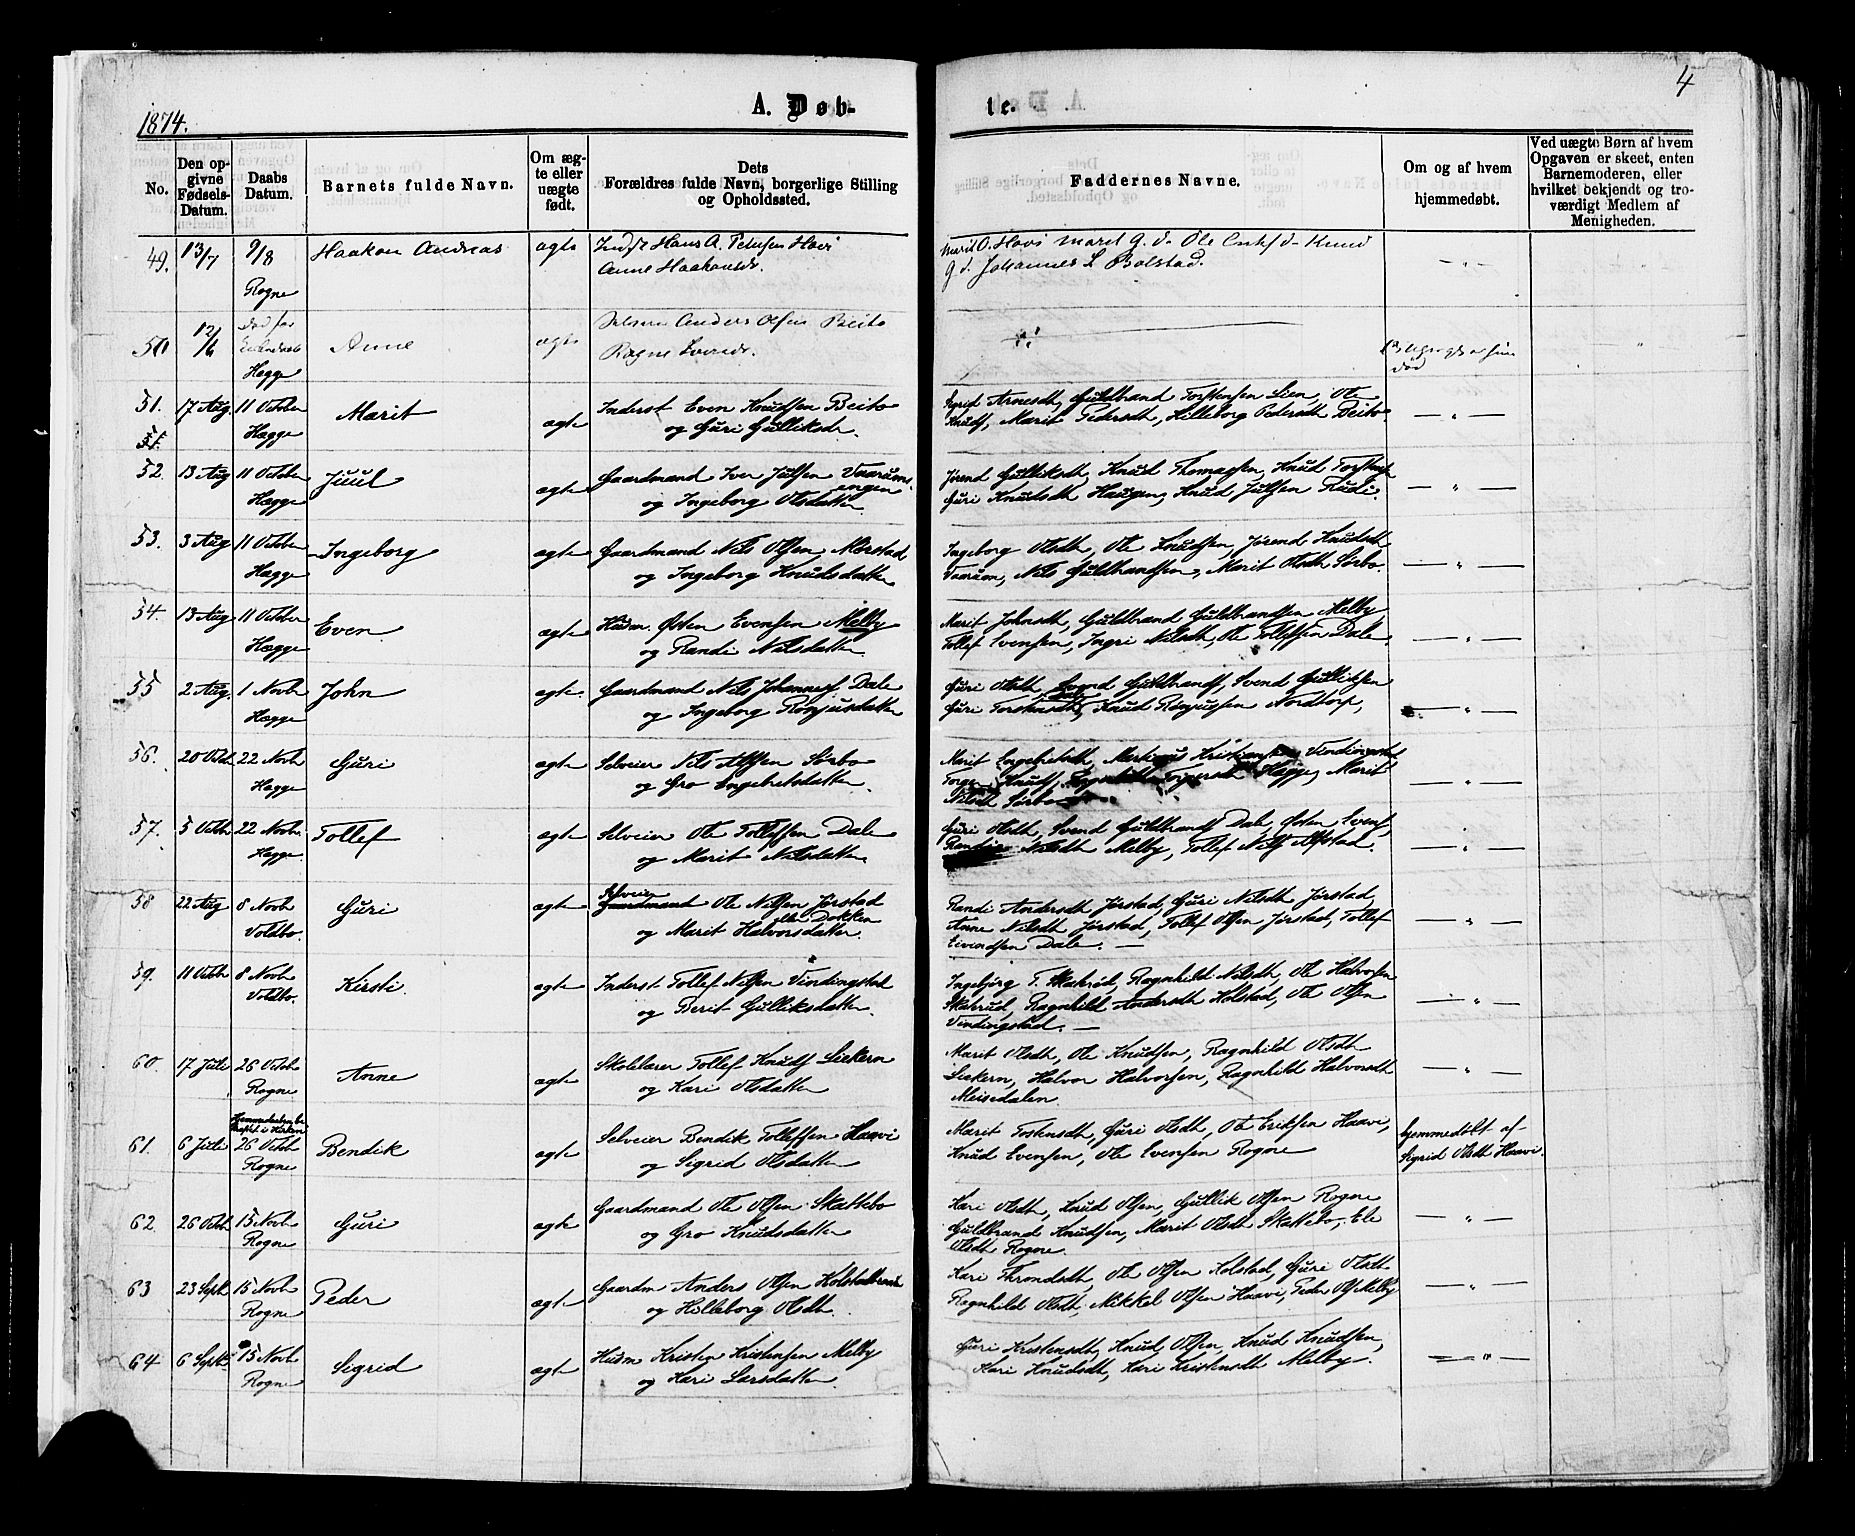 4
1874.
A. Døb-
te.
No.
Den op-
givne
Fødsels-
Datum.
Daabs
Datum.
Barnets fulde Navn.
Om æg-
te eller
uægte
født.
Dets
Forældres fulde Navn, borgerlige Stilling
og Opholdssted.
Faddernes Navne.
Om og af hvem
hjemmedøbt.
Ved uægte Børn af hvem
Opgaven er skeet, enten
Barnemoderen, eller
hvilket bekjendt og tro-
værdigt Medlem af
Menigheden.
49. 13/7 9/8 Haakon Andreas ægte Hans A. Petersen Hovi
Rogne Anne Haakonsdr.
Marit O. Hovi Marit G. d. Ole
G. d. Johannes L Bolstad. — " —
50 12/6 død før
Hegge Anne ægte Anders Olsen Beito
Ragne Iversdr.
død
51. 17 Aug 11 October Marit ægte Inderst Even Knudsen Beito
51. Hegge og Guri Gulliksdr.
Sigrid Arnesdt, Guldbrand Torstensen Lien, Ole
Knuds, Marit Pedersdt, Hilleborg Pedersdt Beito. — " —
52. 13 Aug 11 Octbr Juul ægte Gaardmand Iver Julsen Vaarums-
engen
Hegge og Ingeborg Olsdatter
Jørend Gulliksdt, Knud Thomassen, Knud Torstens
Guri Knudsdt Haugen, Knud Julsen Rudi. — " —
53. 3 Aug 11 Octbr Ingeborg ægte Gaardmand Nils Olsen Mørstad
Hegge og Ingeborg Knudsdatter
Ingeborg Olsdt, Ole Knudsen, Jørend Knudsdt
Vaarum, Nils Guldbrandsen, Marit Olsdt Sørbo. — " —
54. 13 Aug 11 October Even ægte Husm. Østen Evensen Melby
Hegge og Randi Nilsdatter
Marit Johnsdt, Guldbrand Guldbrandsen Melby
Tollef Evensen, Ingri Nilsdt, Ole Tollefsen Dale. — " —
55 2 Aug. 1 Novb John ægte. Gaardmand Nils Johannes. Dale
Hegge og Ingeborg Rønjusdatter
Guri Olsdt, Svend Guldbrands, Svend Gulliksen
Dale
Guri Torstensdt, Knud Rønjussen Nordtorp, — " —
56. 20 Octb 22 Novb Guri ægte Selveier Nils Alfsen Sørbo
Hegge og Gro Engebretsdatter.
Marit Engebretsdt, Markus Kristiansen Vindingstad
Torge Knuds, Ragnhild Torgersdt Hegge, Marit
Nilsdt Sørbo — " —
57. 5 Octb 22 Novb. Tollef ægte Selveier Ole Tollefsen Dale
Hegge. og Marit Nilsdatter.
Guri Olsdt, Svend Guldbrands Dale, Østen Evens,
Randi Nilsdt Melby, Tollef Nils Alfstad. — " —
58 22 Aug 8 Novb Guri ægte Selveier
Gaardmand Ole Nilsen Jørstad
eller Dokken
Voldbo. og Marit Halvorsdatter.
Randi Andersdt Jørstad, Guri Nilsdt Jørstad,
Anne Nilsdt Jørstad, Tollef Olsen Jørstad, Tollef
Eivindsen Dale. — — " —
59. 11 Octbr 8 Novb Kirsti. ægte Inderst Tollef Nilsen Vindingstad
Voldbo. og Berit Gulliksdatter.
Ingebjørg T. Skakrud, Ragnhild Nilsdt, Ole Halvorsen
Skakrud, Ragnhild Andersdt Kolstad, Ole Olsen
Vindingstad. — — " —
60. 17 Juli 26 Octbr Anne ægte Skolelærer Tollef Knuds Liekern
Rogne og Kari Olsdatter
Marit Olsdt, Ole Knudsen, Ragnhild Olsdt
Liekern, Halvor Halvorsen, Ragnhild Halvorsdt
Meisedalen. — " —
61. 6 Juli 26 Octbr Bendik ægte Selveier Bendik Tollefsen Haavi
Rogne og Sigrid Olsdatter
Marit Tostensdt, Guri Olsdt, Ole Eriksen Haavi,
Knud Evensen, Ole Evensen Rogne
hjemmedøbt af
Sigrid Olsdt Haavi.
62 26 Octbr 15 Novb Guri ægte Gaardmand Ole Olsen Skattebo
Rogne og Gro Knudsdatter
Kari Olsdt, Knud Olsen, Gullik Olsen Rogne
Guldbrand Knudsen, Marit Olsdt Skattebo, Ele
Olsdt Rogne. — " —
63 23 Septb 15 Novb Peder ægte Gaardm Anders Olsen Kolstadbraate
Rogne og Hilleborg Olsdt.
Kari Throndsdt, Ole Olsen Kolstad, Guri Olsdt
Ragnhild Olsdt, Mikkel Olsen Haavi, Peder Ols Melby — " —
64 6 Septb 15 Novb Sigrid ægte Husm Kristen Kristensen Melby
Rogne og Kari Larsdatter
Guri Kristensdt, Knud Olsen, Knud Knudsen,
Kari Knudsdt, Kari Kristensdt Melby. — " —